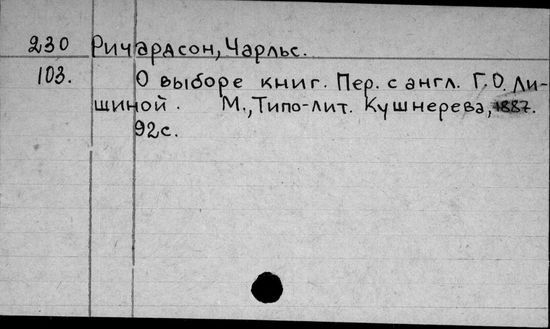 230 Ричардсон, Чарльс.
103. О выборе книг. Пер. с англ. Г.О. Ли-
шиной. М., Типо-лит. Кушнерева, 1887.
92с.